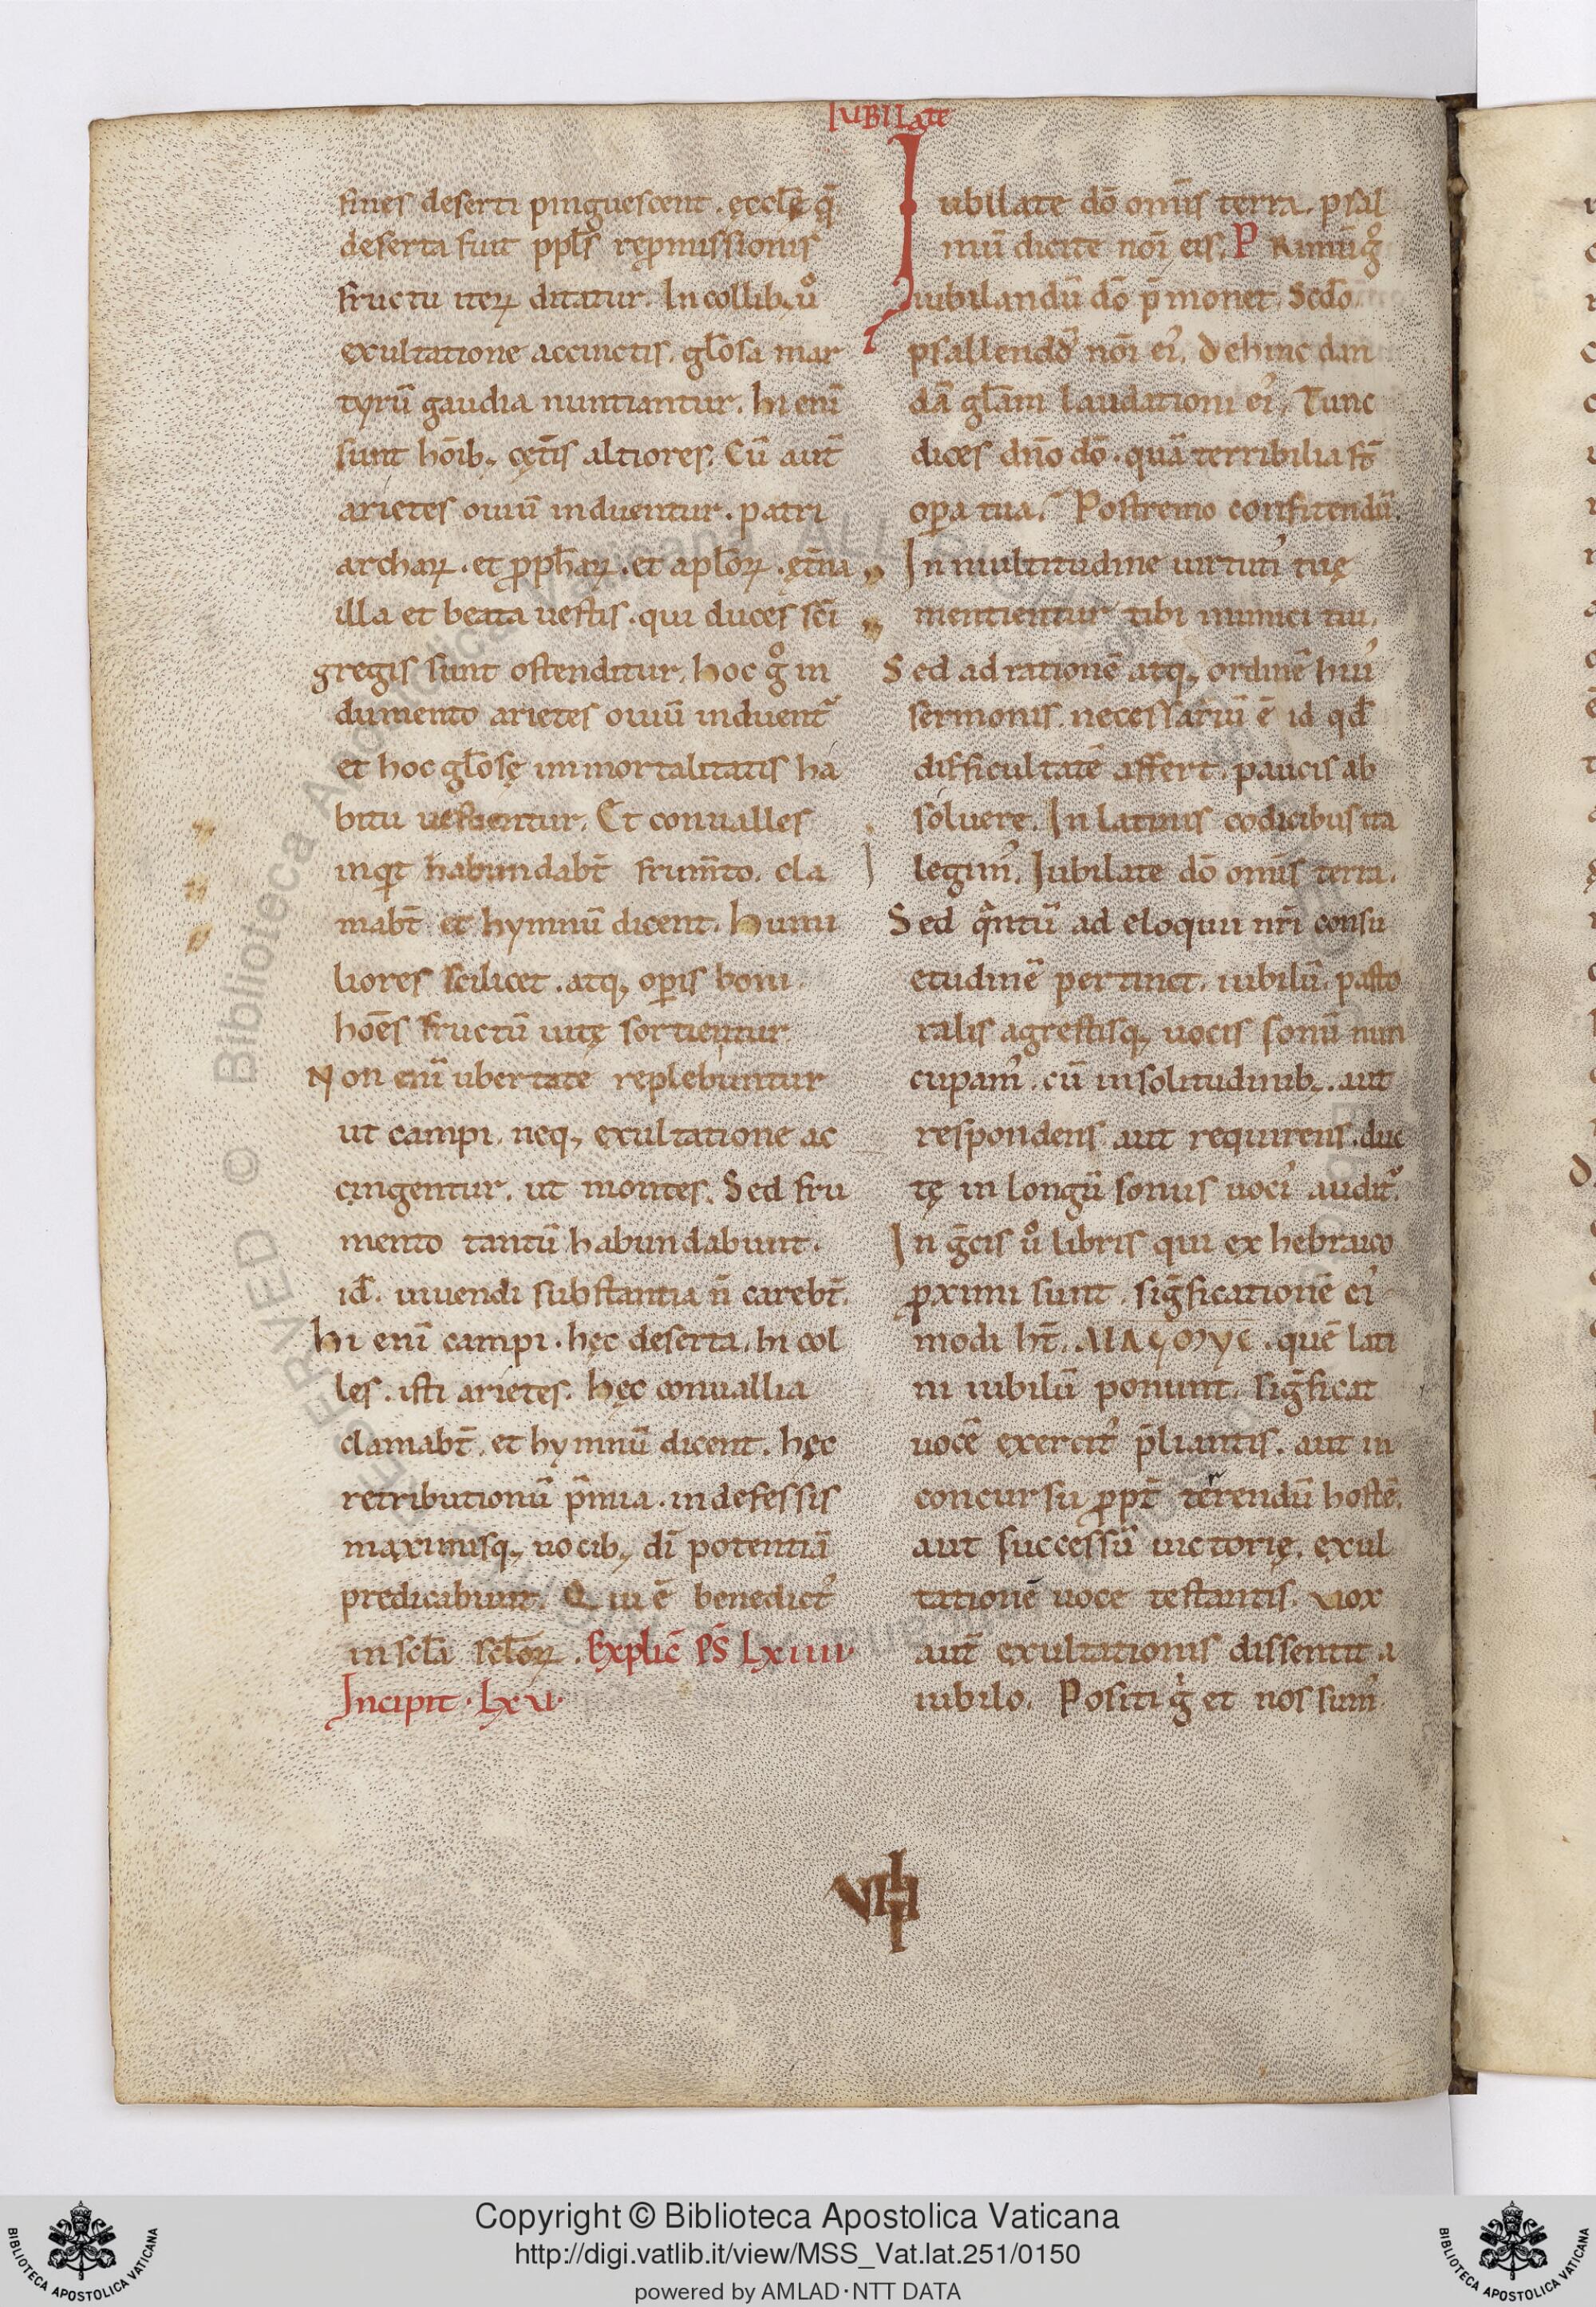 IUBILate
fines deserti pinguescent. ęccłę q̄
deserta fuit ppłs̉ ręp̱missionis
fructu iteꝝ ditatur. In collib; ů
exultatione accinctis. głosa mar
tyrū gaudia nuntiantur. hi enī
sunt hōib; cętīs altiores. Cū aut̄
arietes ouiū induentur. patri
archaꝝ. et ꝓpħaꝝ. et apłoꝝ. ęt̄na
illa et beata uestis. qui duces sc̄i
gregis sunt ostenditur. hoc g̊ in
dumento arietes ouiū induent᷑
et hoc głosę immortalitatis ha
bitu uestientur. Et conualles
inqͥt habundabt̄ frum̄to. cla
mabt̄ et hymnū dicent. humi
liores scilicet. atq; oꝑis boni
hoēs fructū uitę sortientur.
Non enī ubertate replebuntur
ut campi. neq; exultatione ac
cingentur. ut montes. Sed fru
mento tantū habundabunt.
id̄. uiuendi substantia n̄ carebt̄.
hi enī campi. hęc deserta. hi col
les. isti arietes. hęc conuallia
clamabt̄. et hymnū dicent. hęc
retributionū p̄mia. indefessis
maximisq; uocib; dī potentiā
predicabunt. Qui ē benedict᾽
in scła scłoꝝ. Explic̄ PS̄ LXIIII.
Incipit. LXV.
Iubilate dō omīs terra. psal
mū dicite nōi ei᾽. Primū g̊
iubilandū dō p̄monet. Scdo
psallendū nōi ei᾽. dehinc dan
dā głam laudationi ei᾽. Tunc
dices dn̄o dō. quā terribilia st̄
oꝑa tua. Postremo confitendū.
In multitudine uirtuti᾽ tuę
mentientur tibi inimici tui.
Sed ad rationē atq; ordinē hui᾽
sermonis. necessariū ē id qd̄
difficultatē affert. paucis ab
soluere. In latinis codicibus ita
legim᾽. Iubilate dō omīs terra.
Sed qͣntū ad eloquii nr̄i consu
etudinē pertinet. iubilū. pasto
ralis agrestisq; uocis sonū nun
cupam᾽. cū in solitudinib;. aut
respondens aut requirens. duc
tę in longū sonus uoci᾽ audit᷑.
In ḡcis ů libris qui ex hebraico
ꝓximi sunt. siḡficationē ei᾽
modi ht̄. ΑΛΑΥΟΜΥΕ. quē lati
ni iubilū ponunt. siḡficat
uocē exercit᾽ p̄liantis. aut in
concursu ꝓpt̄ terrendū hostē.
aut successū uictorię. exul
tationē uoce testantis. vox
aut̄ exultationis dissentit a
iubilo. Positi gͥ et nos sum᾽
VIII
Copyright © Biblioteca Apostolica Vaticana
http://digi.vatlib.it/view/MSS_Vat.lat.251/0150
powered by AMLAD·NTT DATA